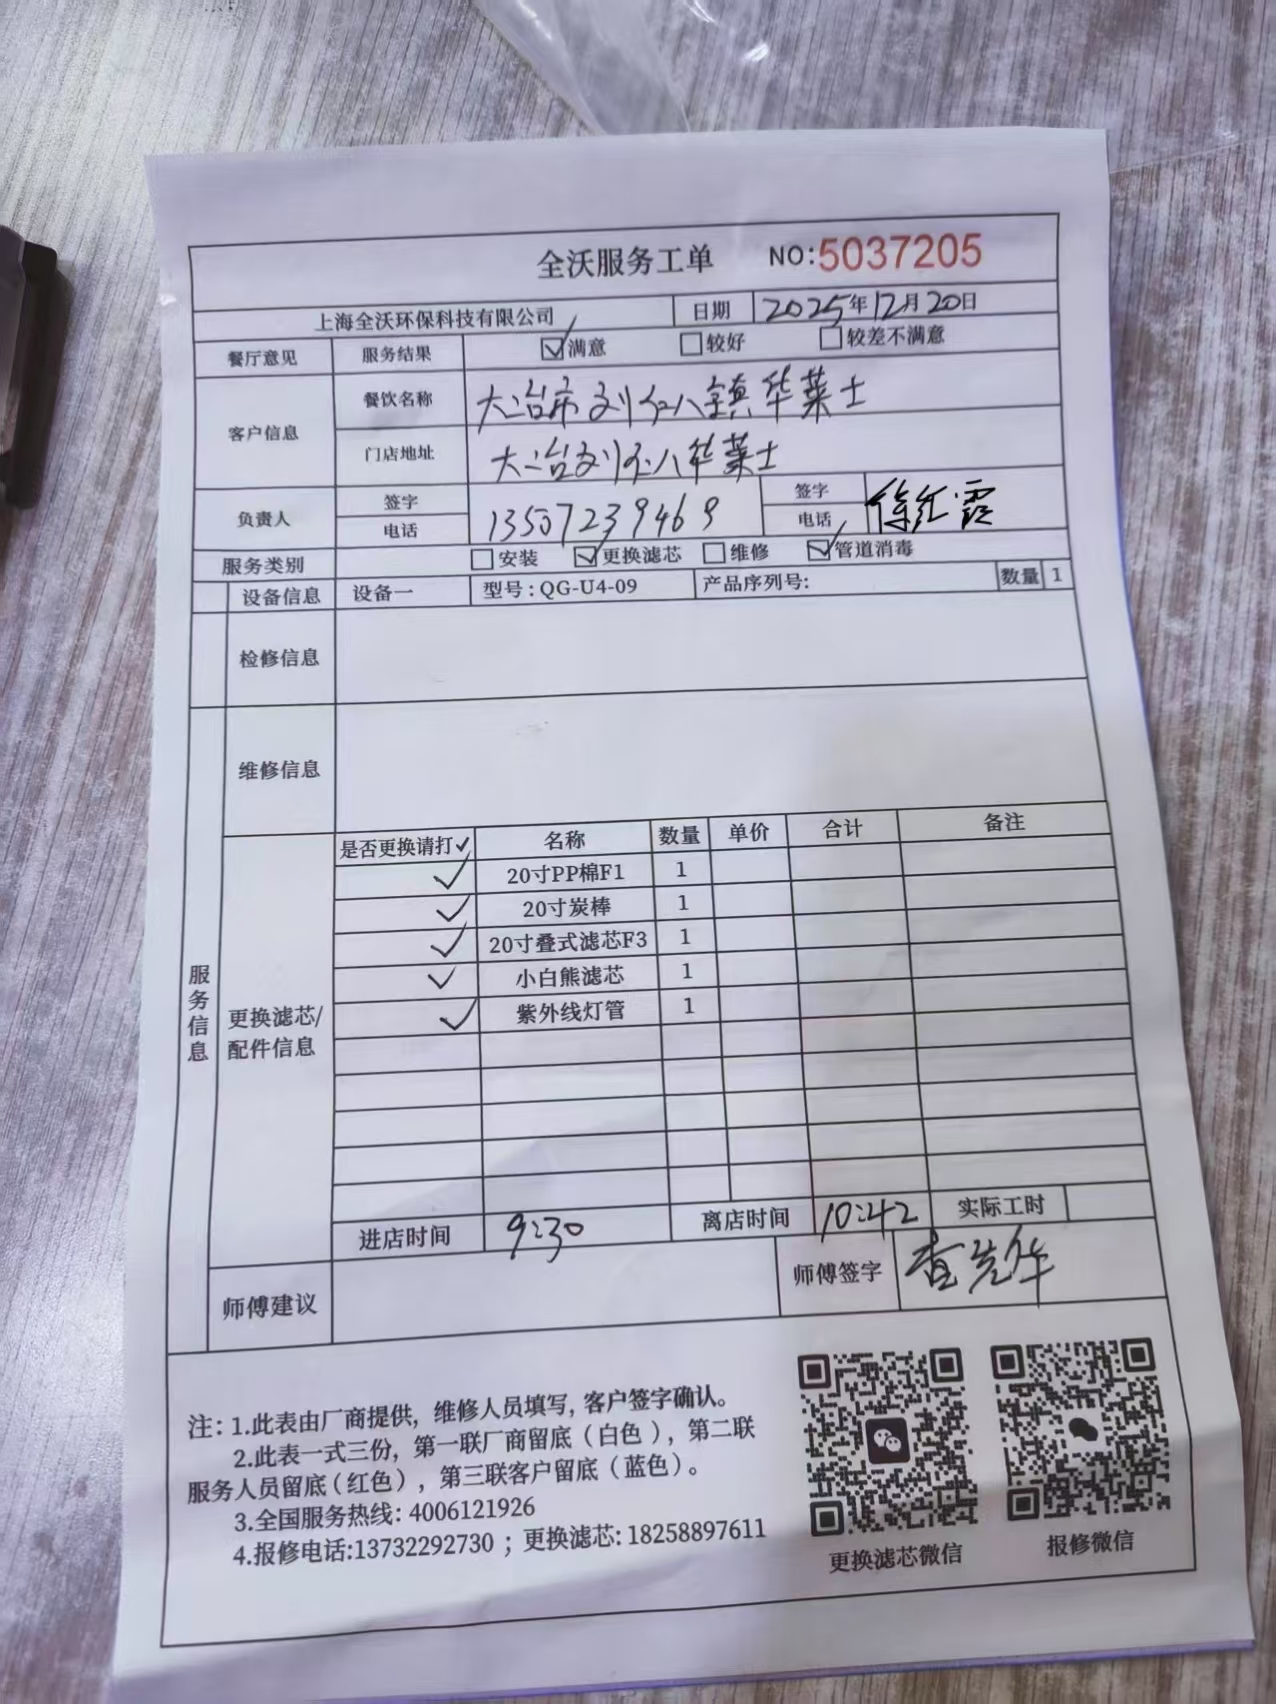 全沃服务工单 NO:5037205
上海全沃环保科技有限公司 日期 2025年12月20日
餐厅意见 服务结果 ☑满意 □较好 □较差不满意
客户信息 餐饮名称 大冶市刘仁八镇华莱士
门店地址 大冶刘仁八华莱士
负责人 签字 电话 13507239469 签字 电话 徐红霞
服务类别 □安装 ☑更换滤芯 □维修 ☑管道消毒
设备信息 设备一 型号:QG-U4-09 产品序列号: 数量 1
检修信息
维修信息
服务信息
更换滤芯/
配件信息
是否更换请打✓ 名称 数量 单价 合计 备注
✓ 20寸PP棉F1 1
✓ 20寸炭棒 1
✓ 20寸叠式滤芯F3 1
✓ 小白熊滤芯 1
✓ 紫外线灯管 1
进店时间 9:30 离店时间 10:42 实际工时
师傅建议 师傅签字 查先华
注: 1.此表由厂商提供, 维修人员填写, 客户签字确认。
2.此表一式三份, 第一联厂商留底(白色), 第二联
服务人员留底(红色), 第三联客户留底(蓝色)。
3.全国服务热线: 4006121926
4.报修电话:13732292730 ; 更换滤芯: 18258897611
更换滤芯微信 报修微信